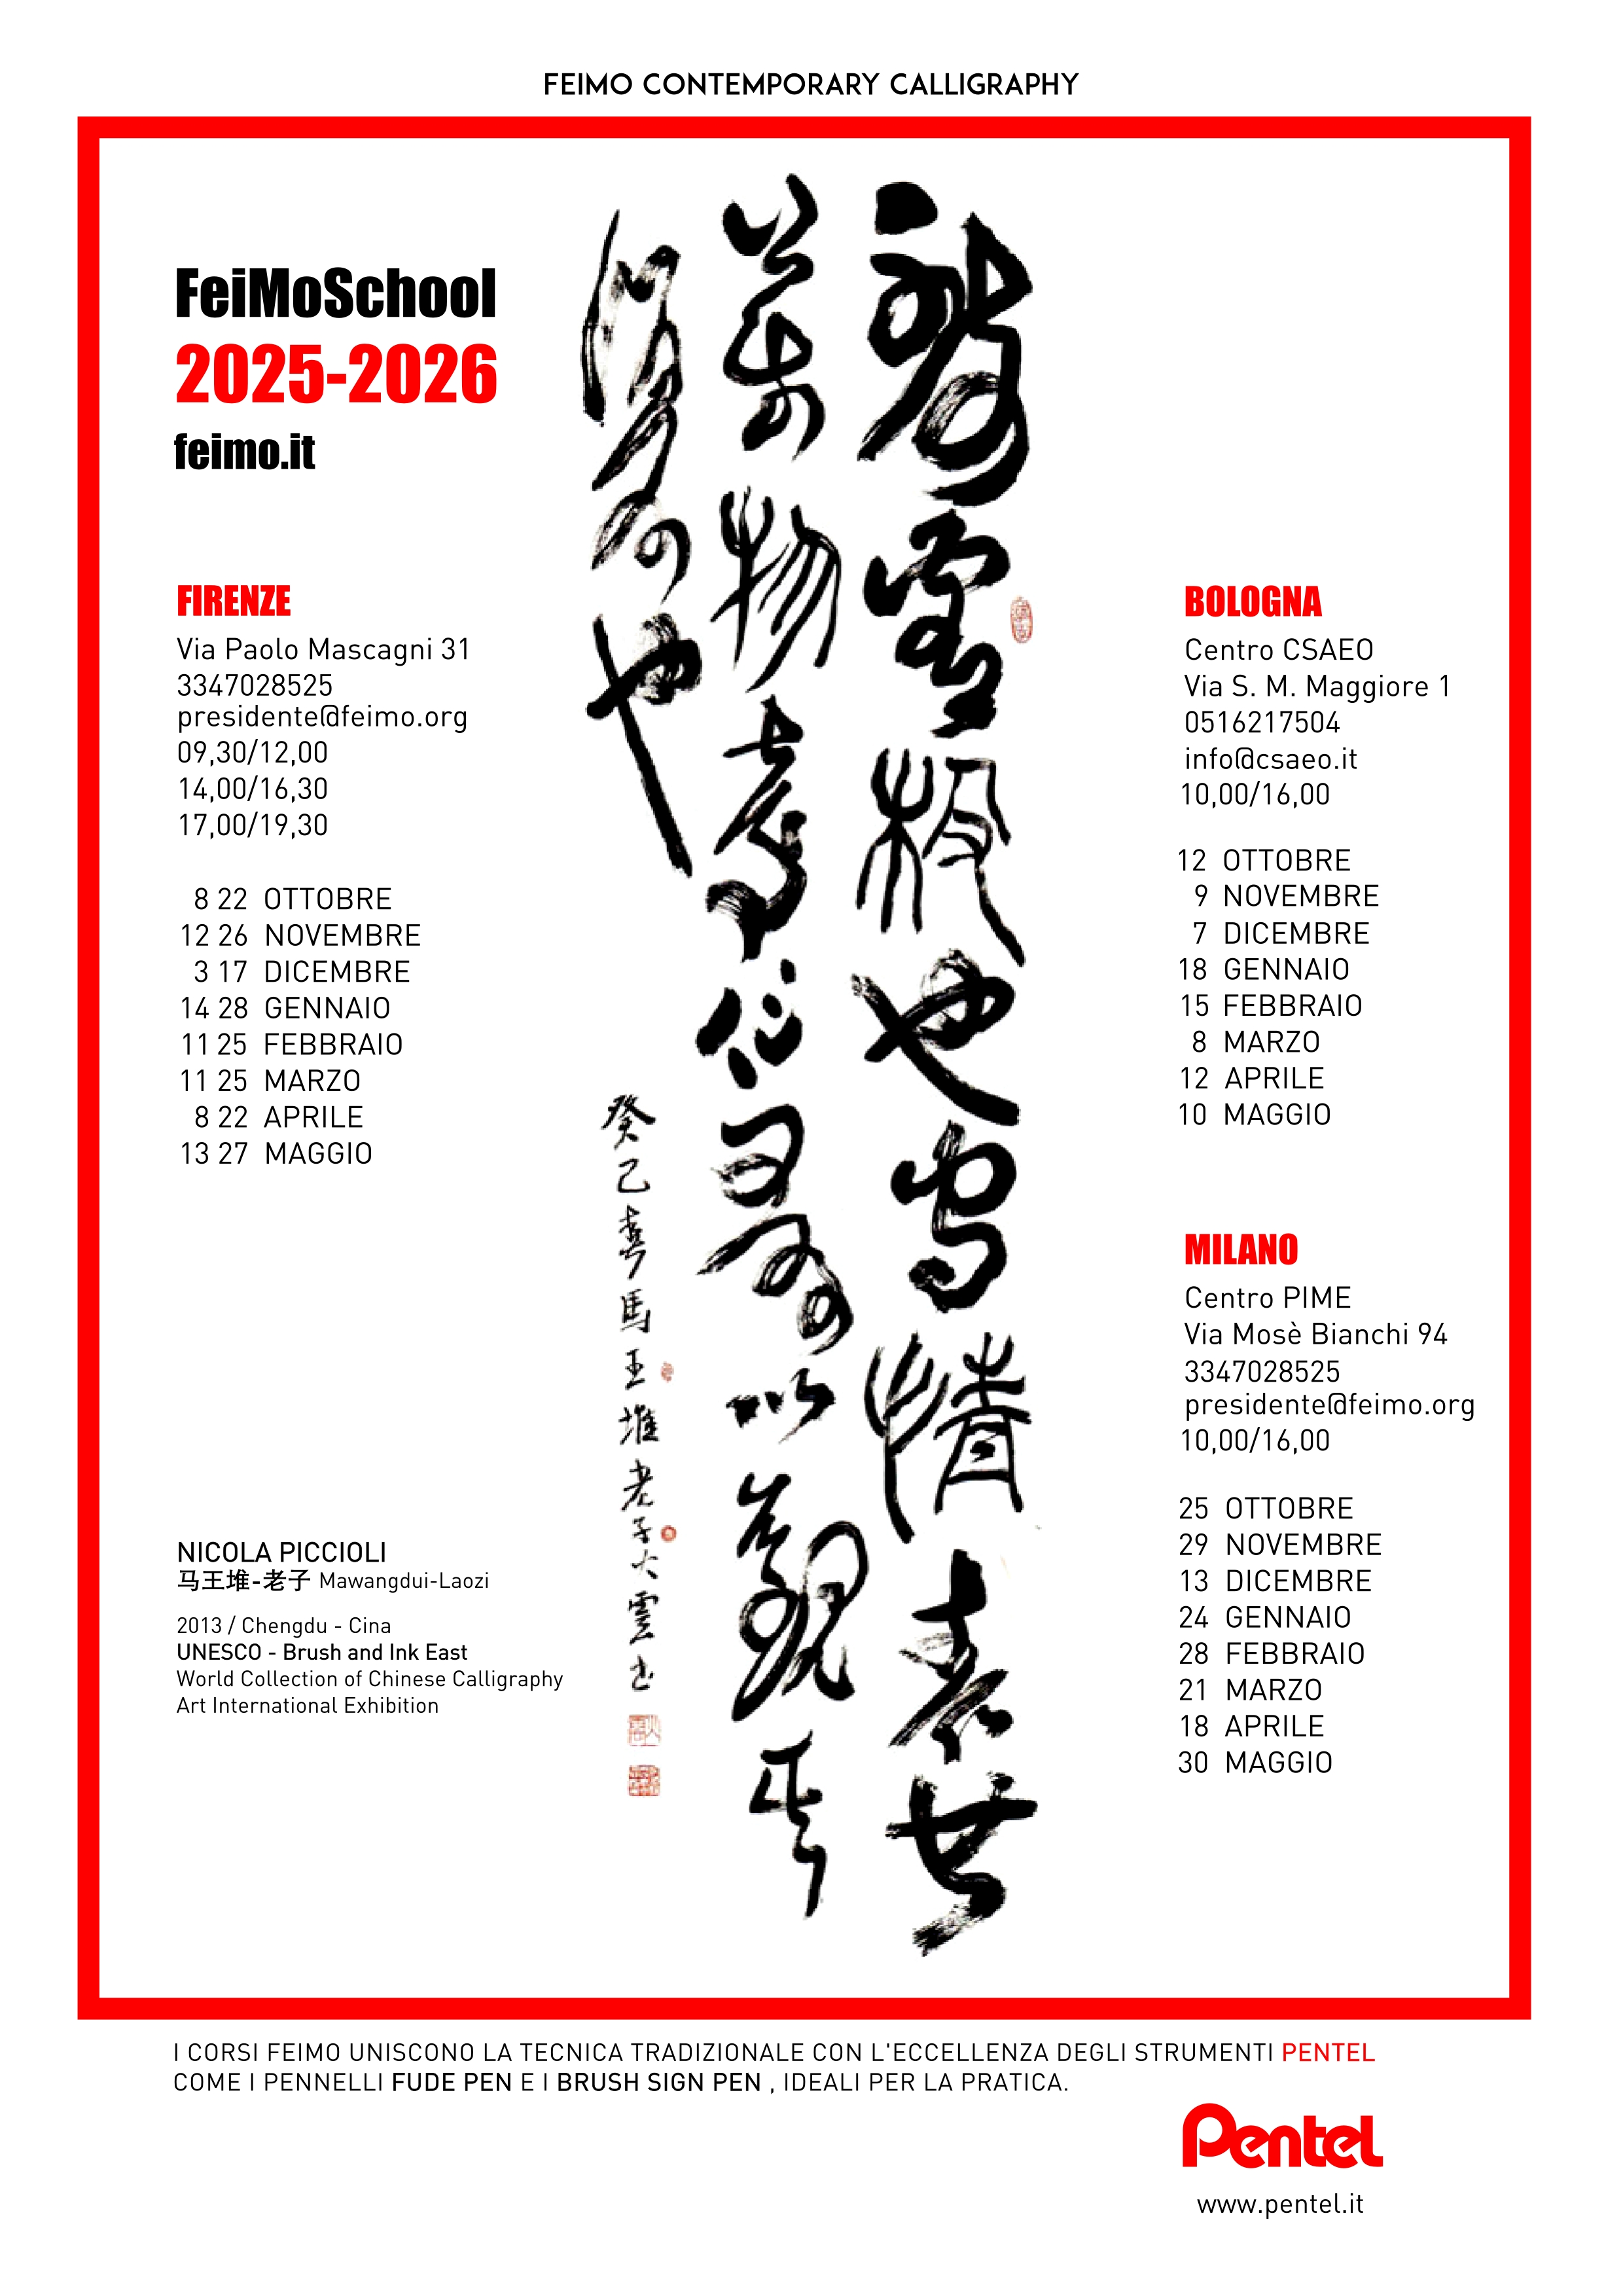 FEIMO CONTEMPORARY CALLIGRAPHY
FeiMoSchool
2025-2026
feimo.it
FIRENZE
Via Paolo Mascagni 31
3347028525
presidente@feimo.org
09,30/12,00
14,00/16,30
17,00/19,30
8 22 OTTOBRE
12 26 NOVEMBRE
3 17 DICEMBRE
14 28 GENNAIO
11 25 FEBBRAIO
11 25 MARZO
8 22 APRILE
13 27 MAGGIO
NICOLA PICCIOLI
马王堆-老子 Mawangdui-Laozi
2013 / Chengdu - Cina
UNESCO - Brush and Ink East
World Collection of Chinese Calligraphy
Art International Exhibition
癸己喜馬王堆老子大雲书
BOLOGNA
Centro CSAEO
Via S. M. Maggiore 1
0516217504
info@csaeo.it
10,00/16,00
12 OTTOBRE
9 NOVEMBRE
7 DICEMBRE
18 GENNAIO
15 FEBBRAIO
8 MARZO
12 APRILE
10 MAGGIO
MILANO
Centro PIME
Via Mosè Bianchi 94
3347028525
presidente@feimo.org
10,00/16,00
25 OTTOBRE
29 NOVEMBRE
13 DICEMBRE
24 GENNAIO
28 FEBBRAIO
21 MARZO
18 APRILE
30 MAGGIO
I CORSI FEIMO UNISCONO LA TECNICA TRADIZIONALE CON L'ECCELLENZA DEGLI STRUMENTI PENTEL
COME I PENNELLI FUDE PEN E I BRUSH SIGN PEN , IDEALI PER LA PRATICA.
Pentel
www.pentel.it